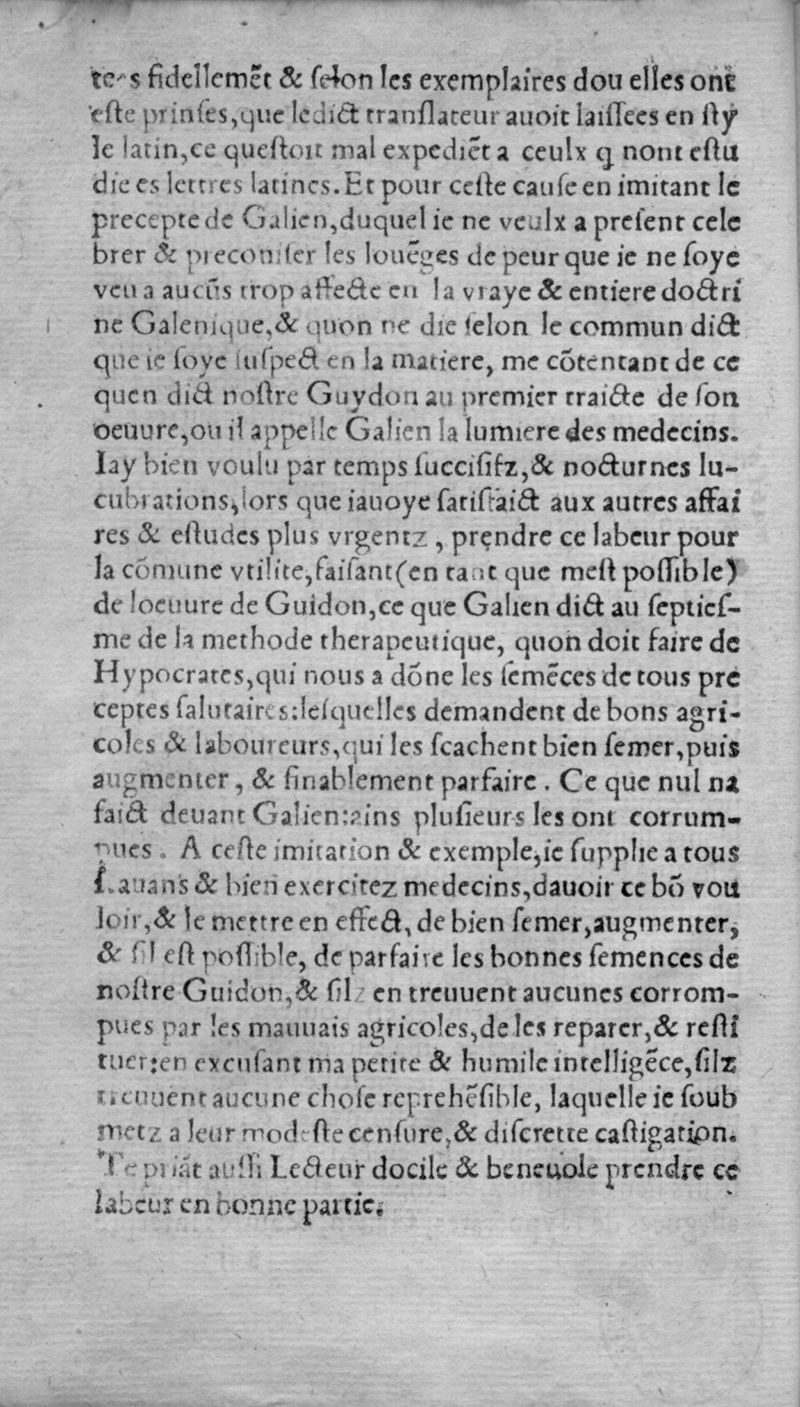 fidellemēt & ſelon les exemplaires dou elles ont
eſte prinſes,que ledict tranſlateur auoit laiſſees en ſty
le latin,ce queſtoit mal expediēt a ceulx q̃ nont eſtu
die es lettres latines.Et pour ceſte cauſe en imitant le
precepte de Galien,duquel ie ne veulx a preſent cele
brer & preconiſer les louēges de peur que ie ne ſoye
veu a aucūs trop affecte en la vraye & entiere doctri
ne Galenique,& quon ne die ſelon le commun dict
que ie ſoye ſuſpect en la matiere, me cōtentant de ce
quen dict noſtre Guydon au premier traicte de ſon
oeuure,ou il appelle Galien la lumiere des medecins.
Iay bien voulu par temps ſucciſifz,& nocturnes lu-
cubrations,lors que iauoye ſatiſfaict aux autres affai
res & eſtudes plus vrgentz , prendre ce labeur pour
la cōmune vtilite,faiſant(en tant que meſt poſſible)
de loeuure de Guidon,ce que Galien dict au ſeptieſ-
me de la methode therapeutique, quon doit faire de
Hypocrates,qui nous a dōne les ſemēces de tous pre
ceptes ſalutaires:leſquelles demandent de bons agri-
coles & laboureurs,qui les ſcachent bien ſemer,puis
augmenter, & finablement parfaire . Ce que nul na
faict deuant Galien:ains pluſieurs les ont corrum-
pues . A ceſte imitation & exemple,ie ſupplie a tous
ſcauans & bien exercitez medecins,dauoir ce bō vou
loir,& le mettre en effect, de bien ſemer,augmenter,
& ſil eſt poſſible, de parfaire les bonnes ſemences de
noſtre Guidon,& ſilz en treuuent aucunes corrom-
pues par les mauuais agricoles,de les reparer,& reſti
tuer:en excuſant ma petite & humile intelligēce,ſilz
treuuent aucune choſe reprehēſible, laquelle ie ſoub
metz a leur modeſte cenſure,& diſcrette caſtigation.
Te priāt auſſi Lecteur docile & beneuole prendre ce
labeur en bonne partie.